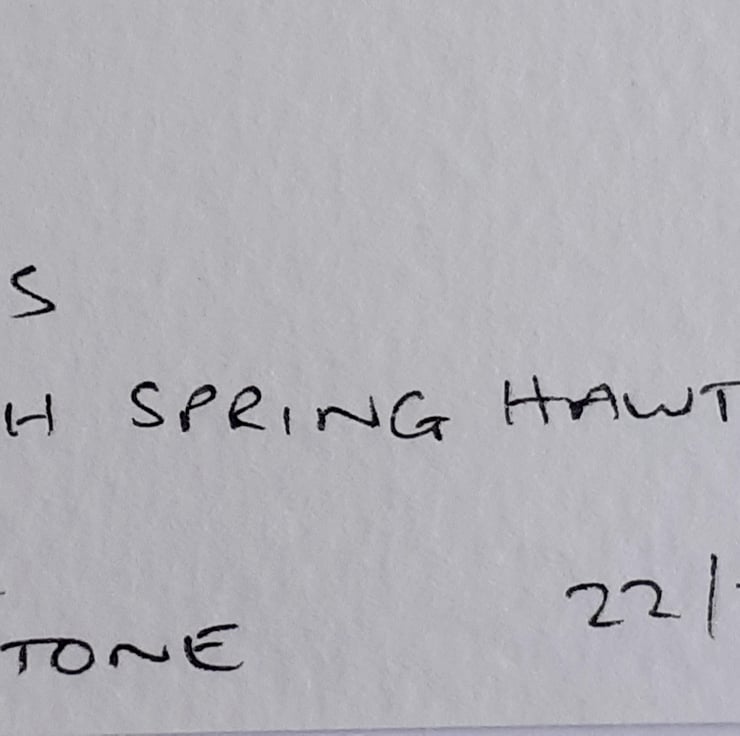 S
H SPRING HAWT
TONE 22/